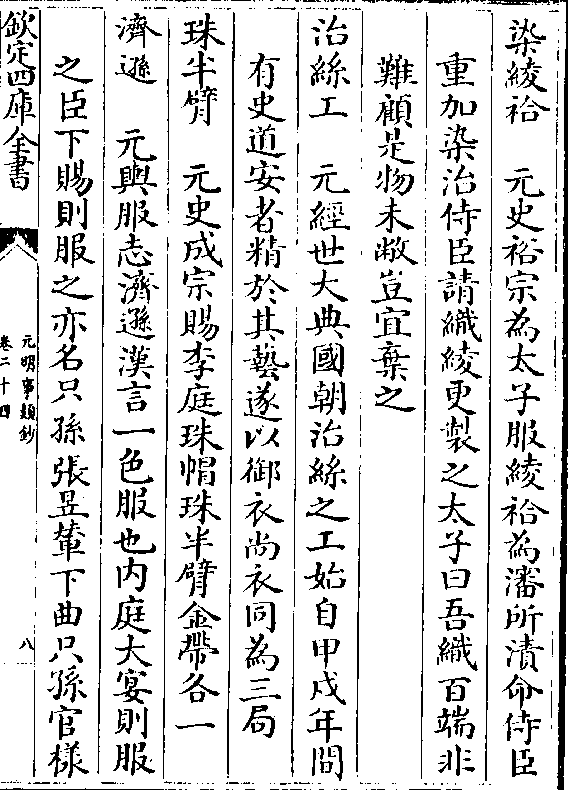 染綾袷　元史裕宗為太子服綾袷為瀋所漬命侍臣
重加染治侍臣請織綾更製之太子曰吾織百端非
難顧是物未敝豈宜棄之
治絲工　元經世大典國朝治絲之工始自甲戌年間
有史道安者精於其藝遂以御衣尚衣同為三局
珠半臂　元史成宗賜李庭珠帽珠半臂金帶各一
濟遜　元輿服志濟遜漢言一色服也内庭大宴則服
之臣下賜則服之亦名只孫張昱輦下曲只孫官樣
欽定四庫全書
元明事類鈔
卷二十四
八